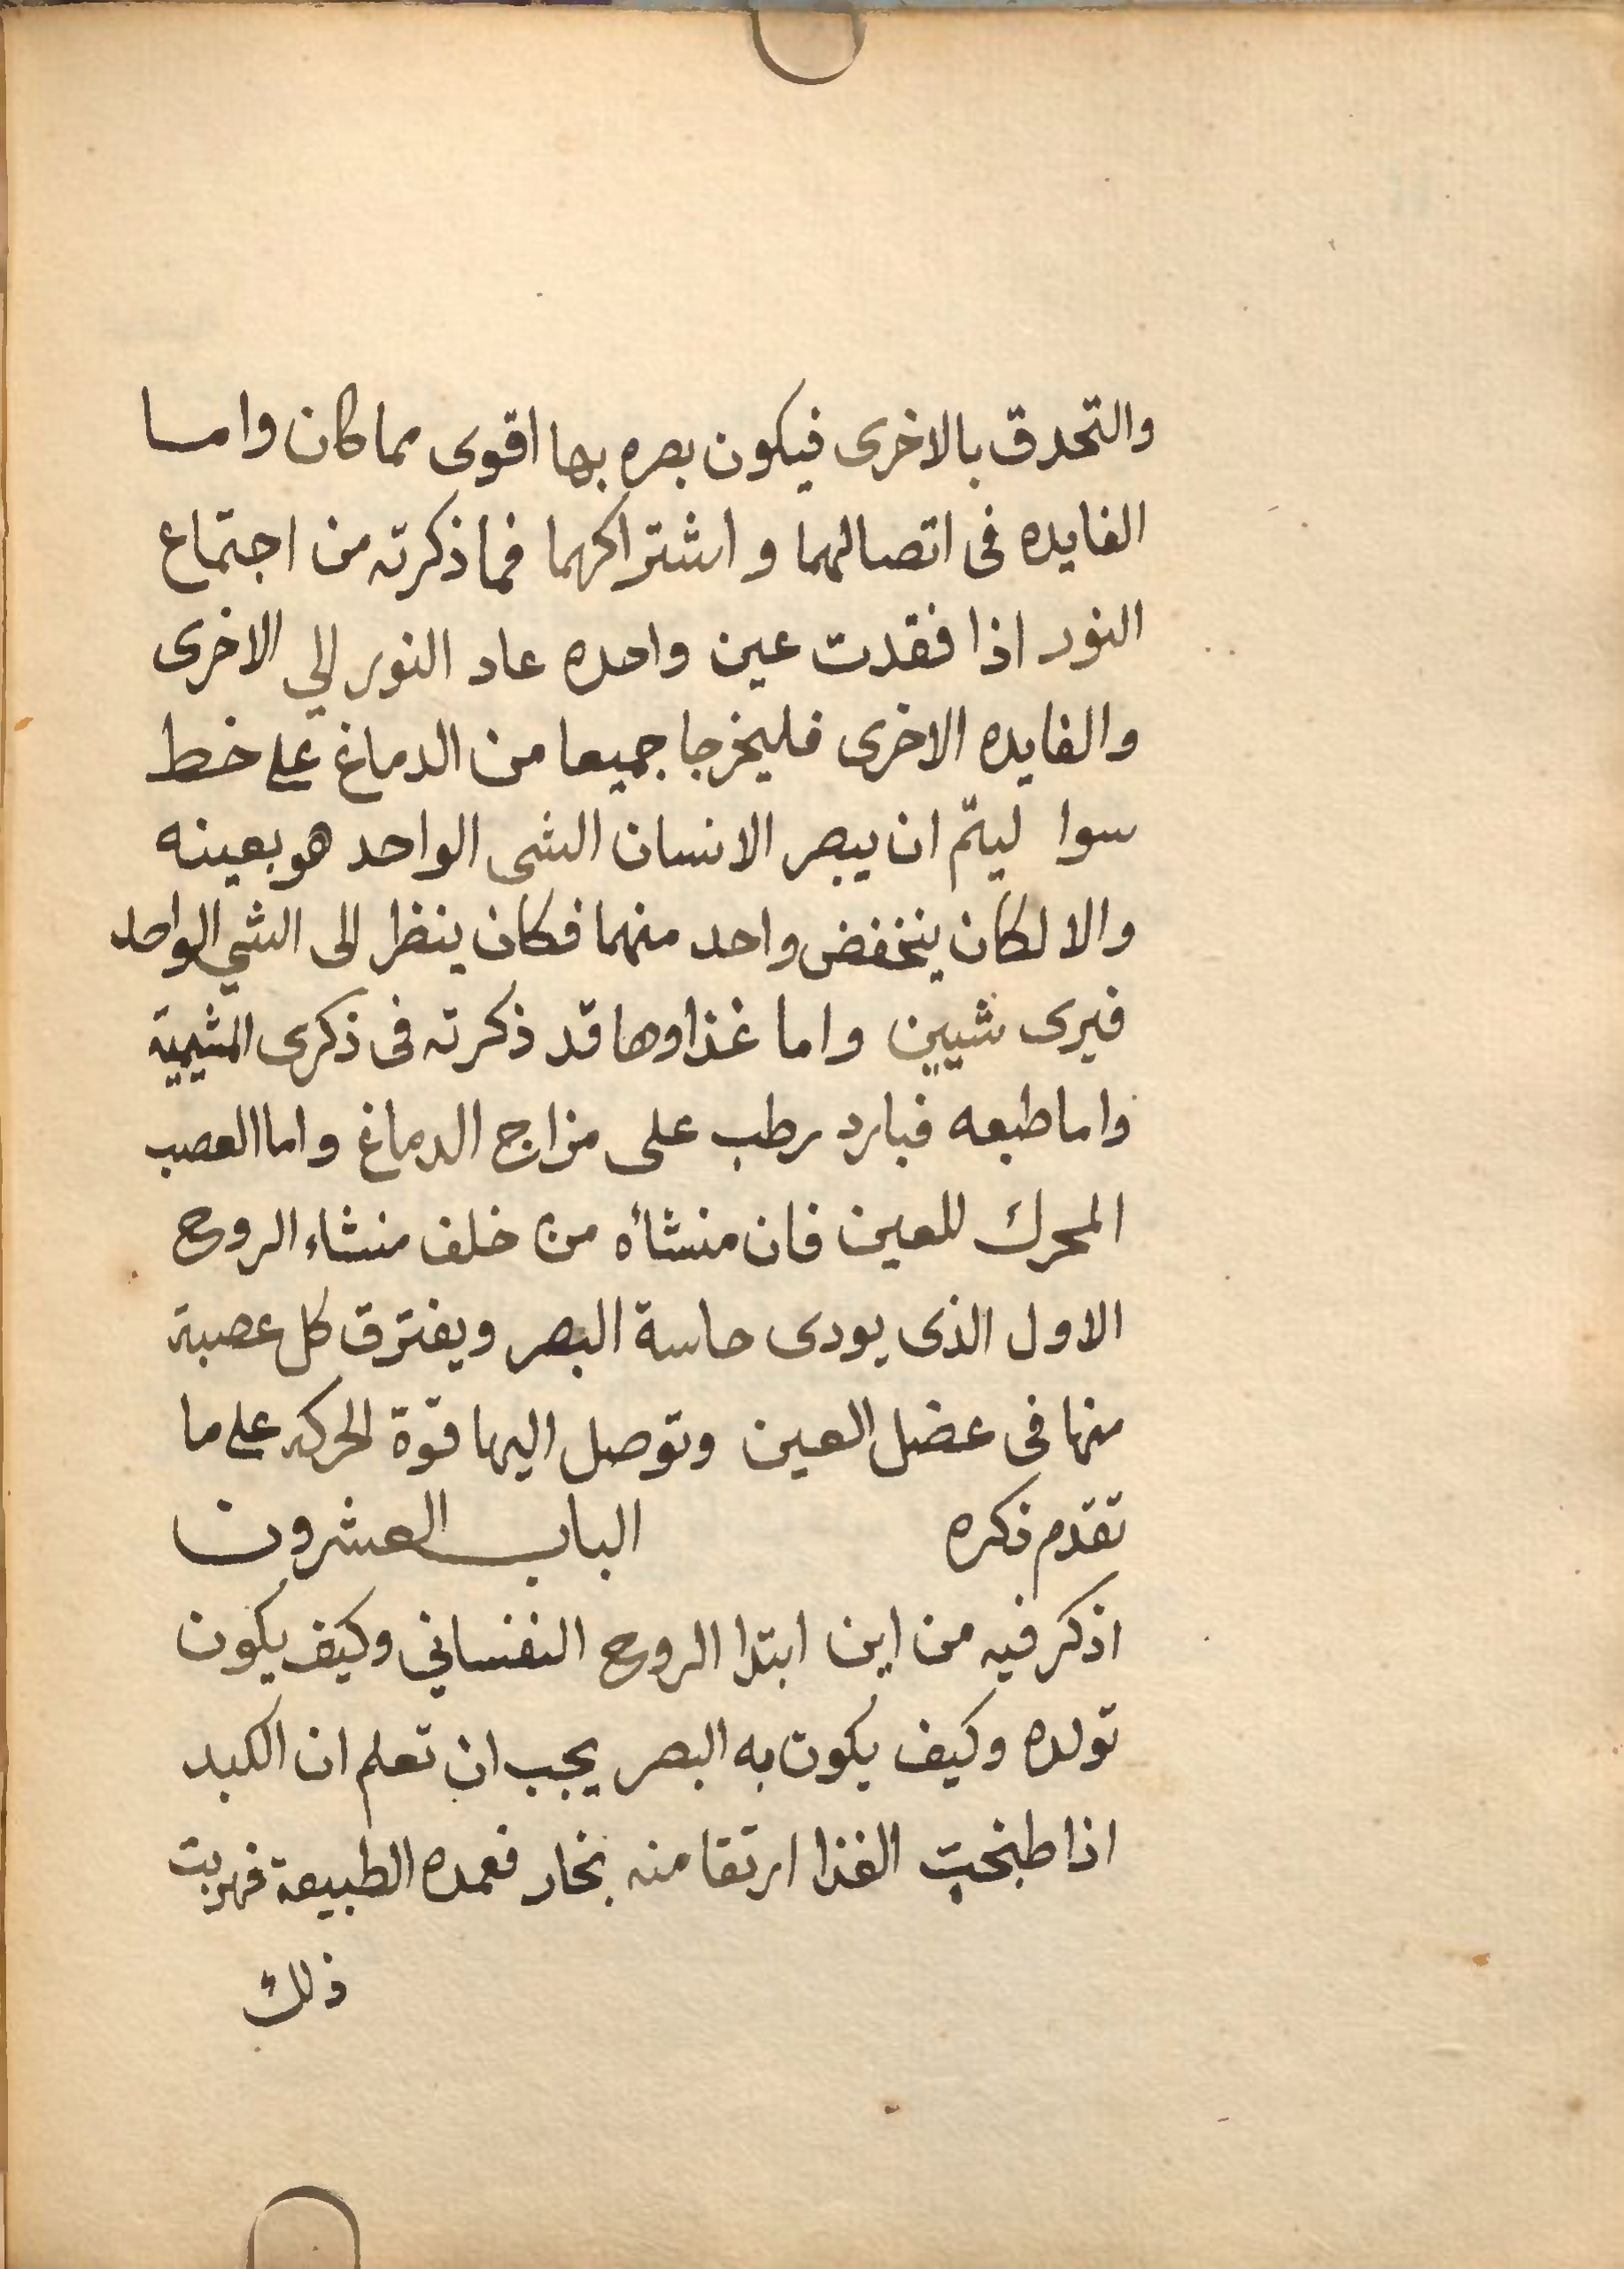 والتحدق بالاخرى فيكون بصره بها اقوى مما كان واما
الفايده فى اتصالهما واشتراكهما فما ذكرته من اجتماع
النور اذا فقدت عين واحده عاد النور الي الاخرى
والفايده الاخرى فليخرجا جميعا من الدماغ على خط
سوا ليتمّ ان يبصر الانسان الشى الواحد هو بعينه
والا لكان ينخفض واحد منهما فكان ينظر الى الشي الواحد
فيرى شيين واما غذاوها قد ذكرته فى ذكرى المشيمية
واما طبعه فبارد رطب على مزاج الدماغ واما العصب
المحرك للعين فان منشأه من خلف منشاء الروح
الاول الذى يودى حاسة البصر ويفترق كل عصبة
منها فى عضل العين وتوصل اليها قوة الحركه على ما
تقدم ذكره الباب العشرون
اذكر فيه من اين ابتدا الروح النفساني وكيف يكون
تولده وكيف يكون به البصر يجب ان تعلم ان الكبد
اذا طبخت الغذا ارتقا منه بخار فعمده الطبيعة فهربت
ذلك